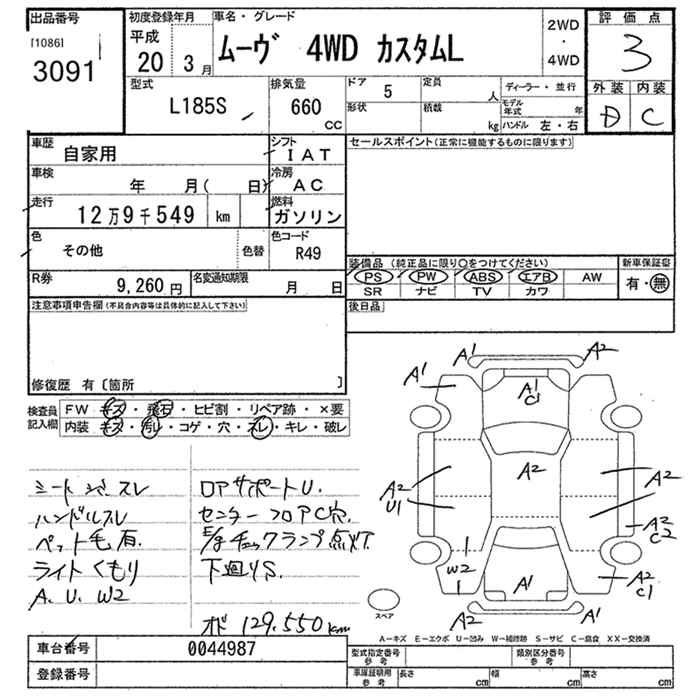 出品番号
[1086]
3091
初度登録年月
平成
20 3月
車名・グレード
ムーヴ 4WD カスタムL
2WD
・
4WD
評価点
3
外装 内装
D C
型式
L185S
排気量
660
CC
ドア 5
形状
定員 人
積載 kg
ディーラー・並行
モデル年式 年
ハンドル 左・右
車歴
自家用
シフト
IAT
車検
年 月( 日)
冷房
AC
走行
12万9千549 km
燃料
ガソリン
色
その他
色替
色コード
R49
R券
9,260円
名変通知期限
月 日
セールスポイント(正常に機能するものに限ります)
装備品(純正品に限り○をつけてください)
PS PW ABS エアB AW
SR ナビ TV カワ
新車保証書
有・無
後日品
注意事項申告欄(不具合内容等は具体的に記入して下さい)
修復歴 有〔箇所 〕
検査員
記入欄
FW キズ・飛石・ヒビ割・リペア跡・×要
内装 キズ・汚レ・コゲ・穴・スレ・キレ・破レ
シートシバ スレ
ハンドルスレ
ペット毛有
ライトくもり
A.U.W2
ロアサポートU.
センターフロアC穴.
E/gチェックランプ点灯
下廻りS.
オド 129.550km
A1
A2
A1
A1
C1
A2
A2
U1
A2
A2
C2
W2
A1
A2
C1
A2
A2
スペア
A−キズ E−エクボ U−凹み W−補修跡 S−サビ C−腐食 XX−交換済
車台番号
0044987
登録番号
型式指定番号
参考
類別区分番号
参考
車庫証明用
参考
長さ cm
幅 cm
高さ cm